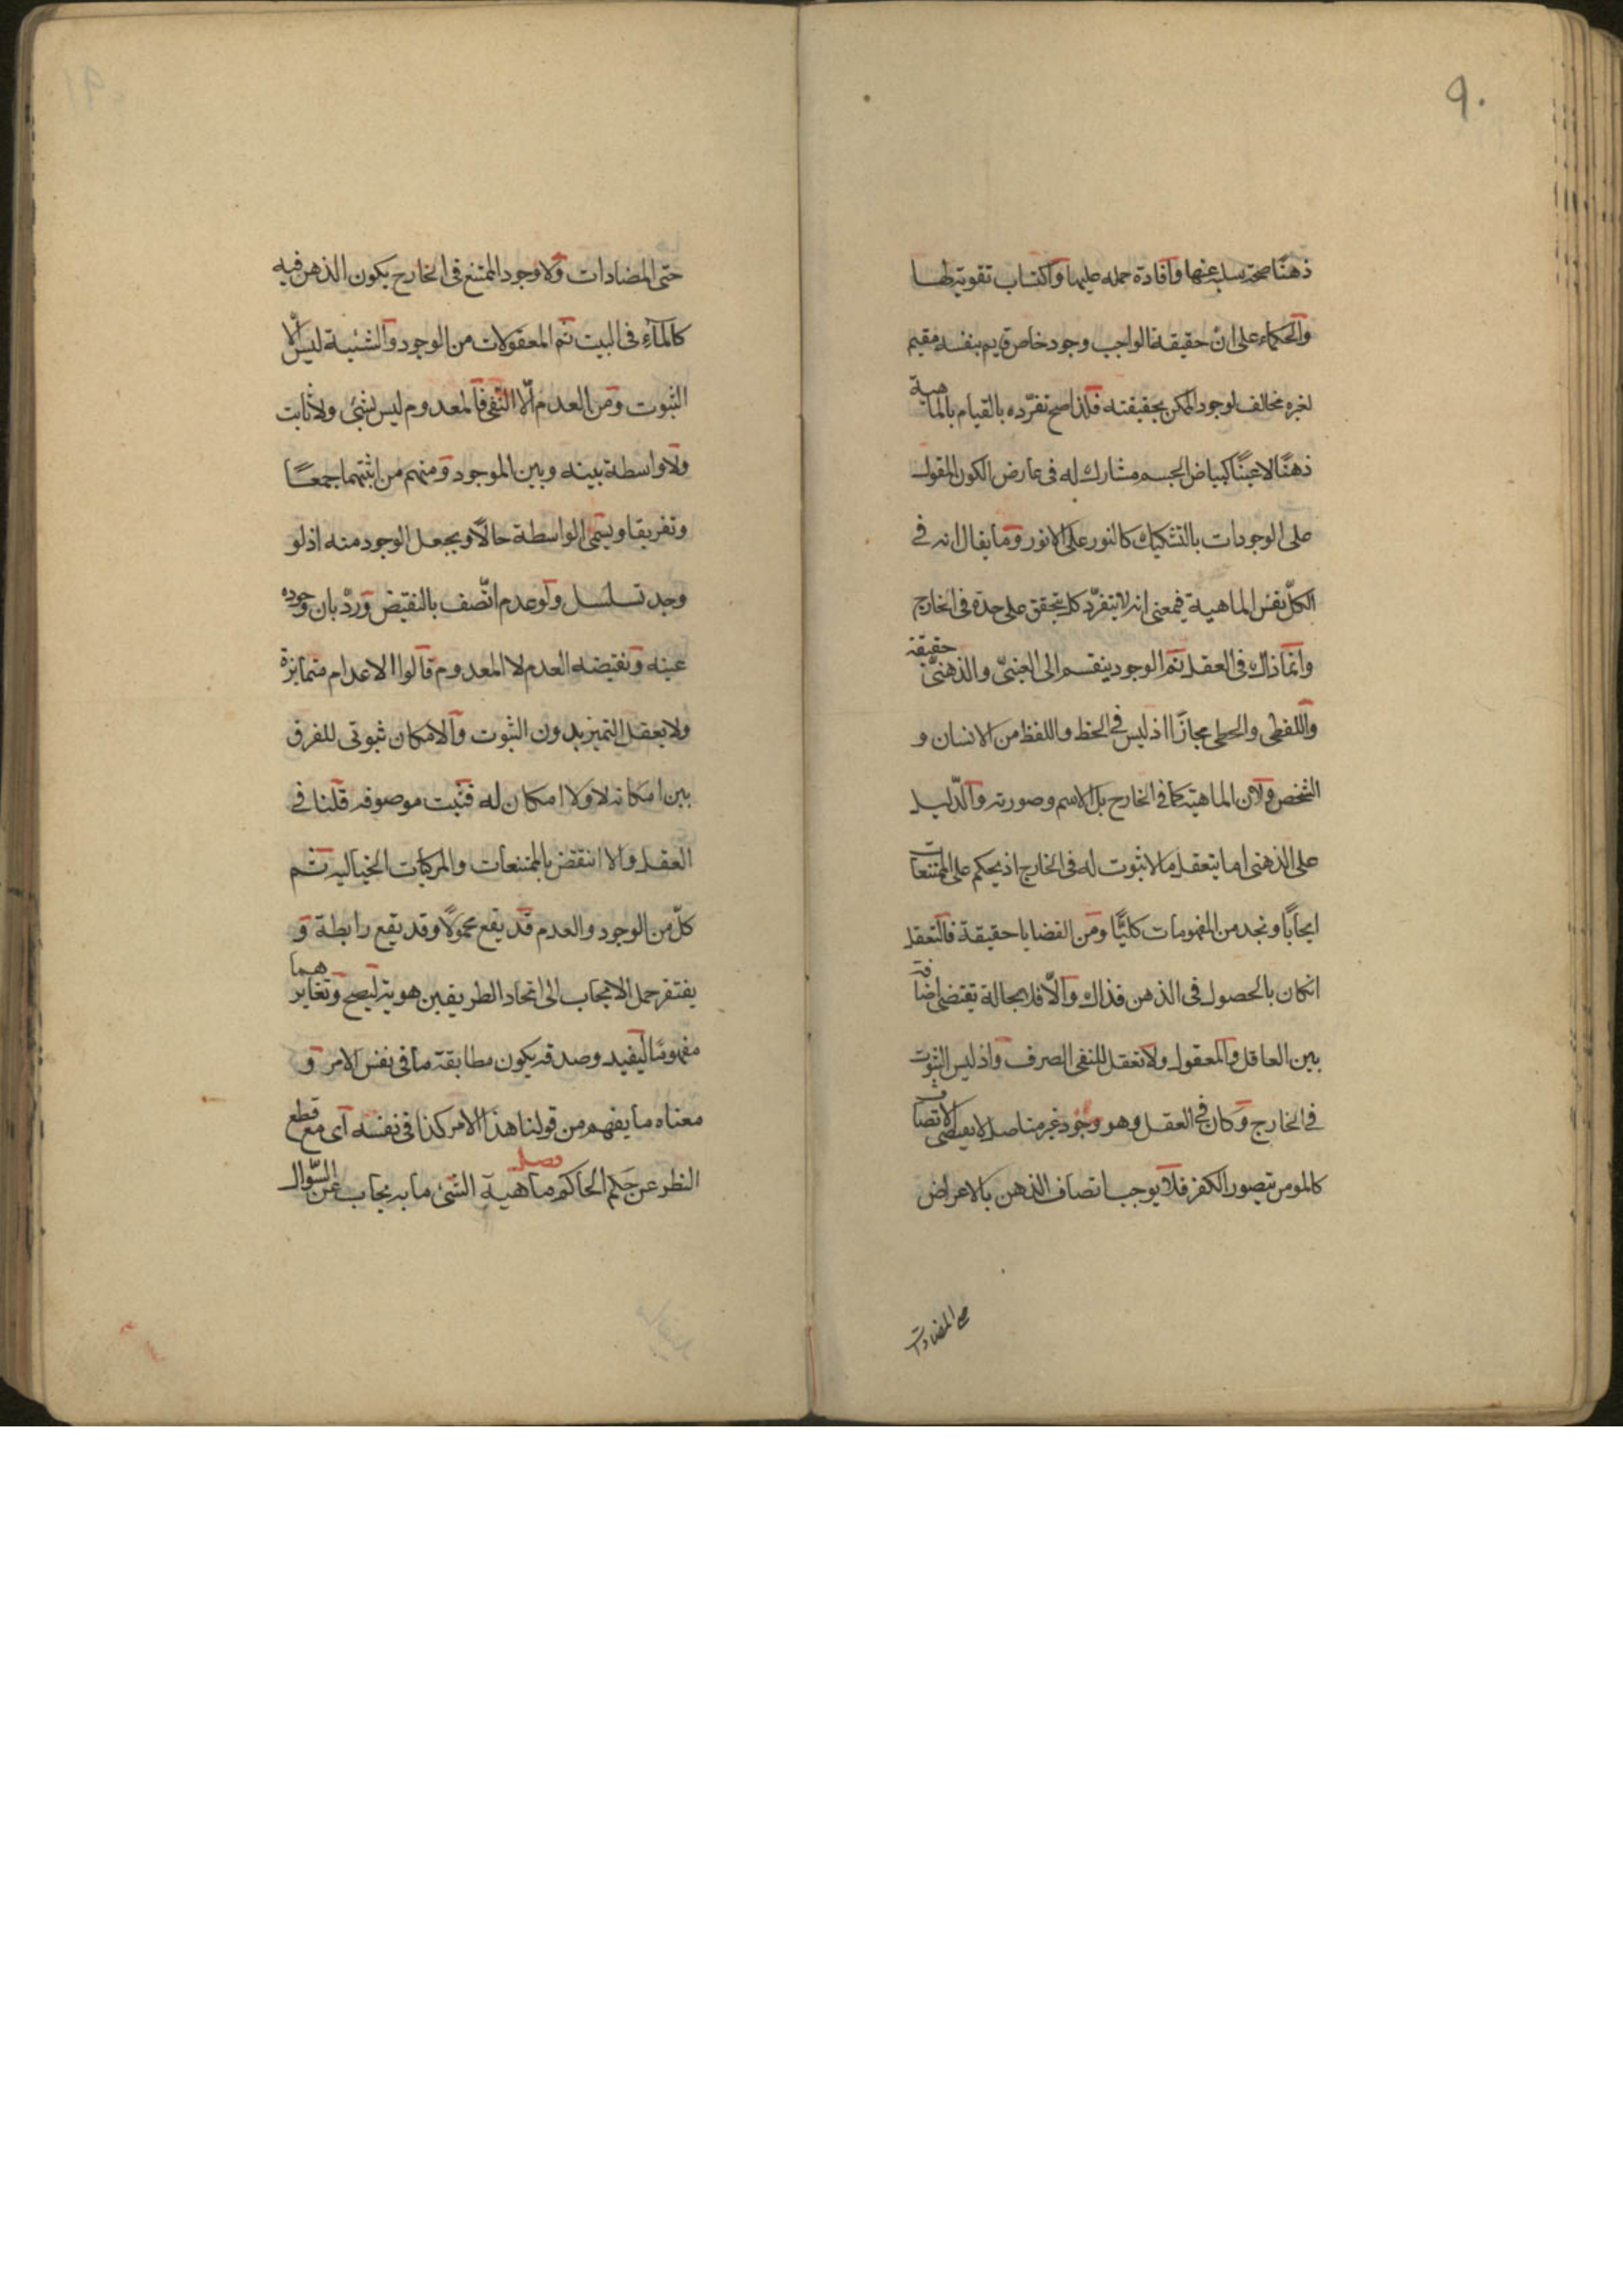 ٩٠
ذهنًا صحة سلبه عنها وافادة حمله عليها واكتساب تقويته لها
والحكماء على ان حقيقة الواجب وجود خاص قايم بنفسه مقيم
لغيره مخالف لوجود الممكن بحقيقته فلذا صح تفرّده بالقيام بالماهية
ذهنًا لا عينًا كبياض الجسم مشارك له في عارض الكون المقول
على الوجودات بالتشكيك كالنور على الانور وما يقال انه في
الكلّ نفس الماهية فمعنى انه لا يتفرّد كل بتحقق على حدة في الخارج
وانما ذاك في العقل ثم الوجود ينقسم الى العينىّ والذهنىّ حقيقة
واللفظى والخطى مجازًا اذ ليس في الخط واللفظ من الانسان و
الشخص ولا من الماهية كما في الخارج بل الاسم وصورته والدّليل
على الذهنى اما يتعقل ما لا ثبوت له في الخارج اذ يحكم على الممتنعات
ايجابًا ونجد من المفهومات كليًّا ومن القضايا حقيقة فالتعقل
انكان بالحصول في الذهن فذاك والّا فلا محالة تقتضى اضافة
بين العاقل والمعقول ولا تعقل للنفى الصرف واذ ليس الثبوت
في الخارج وكان في العقل وهو وجود غير متاصل لا يقتضى الاتصاف
كالمومن يتصور الكفر فلا يوجب اتصاف الذهن بالاعراض
حتى المضادات
حتى المضادات ولا وجود الممتنع في الخارج بكون الذهن فيه
كالماء في البيت ثم المعقولات من الوجود والشيئية ليس الّا
الثبوت ومن العدم الّا النفى فالمعدوم ليس بشئ ولا ثابت
ولا واسطة بينه وبين الموجود ومنهم من اثبتهما جمعًا
وتفريقا ويسمى الواسطة حالًا ويجعل الوجود منه اذ لو
وجد تسلسل ولو عدم اتّصف بالنقيض وردّ بان وجوده
عينه ونقيضه العدم لا المعدوم قالوا الاعدام متمايزة
ولا يعقل التميز بدون الثبوت والامكان ثبوتى للفرق
بين امكانه لا ولا امكان له فثبت موصوفه قلنا في
العقل والا انتقض بالممتنعات والمركبات الخياليه ثم
كلّ من الوجود والعدم قد يقع محمولًا وقد يقع رابطة و
يفتقر حمل الايجاب الى اتحاد الطريفين هوية ليصح وتغايرهما
مفهومًا ليفيد وصدقه يكون مطابقة ما في نفس الامر و
معناه ما يفهم من قولنا هذا الامر كذا في نفسه اى مع قطع
النظر عن حكم الحاكم فصل ماهية الشئ ما به يجاب عن السّوال